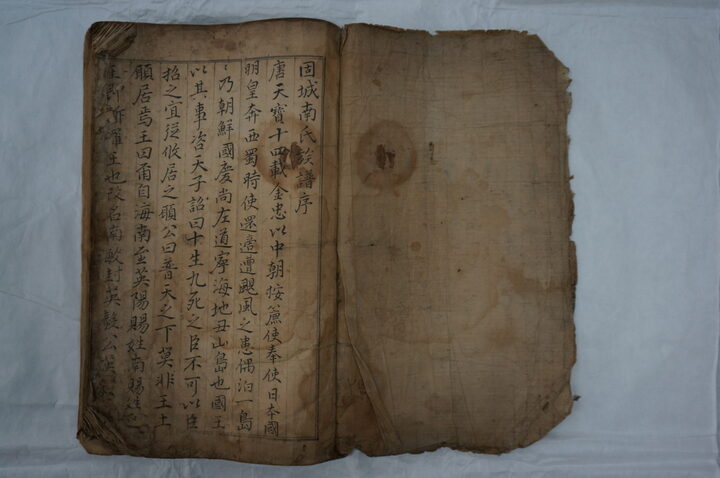 固城南氏族譜序
唐天寶十四載金忠以中朝按廉使奉使日本國
明皇奔西蜀時使還遭颶風之患偶泊一島
〻乃朝鮮國慶尚左道寧海地丑山島也國王
以其事咨天子詔曰十生九死之臣不可以臣
招之宜從攸居之願公曰普天之下莫非王土
願居焉王曰甭自海南至英陽賜姓南賜
也改名南敏封英毅公英